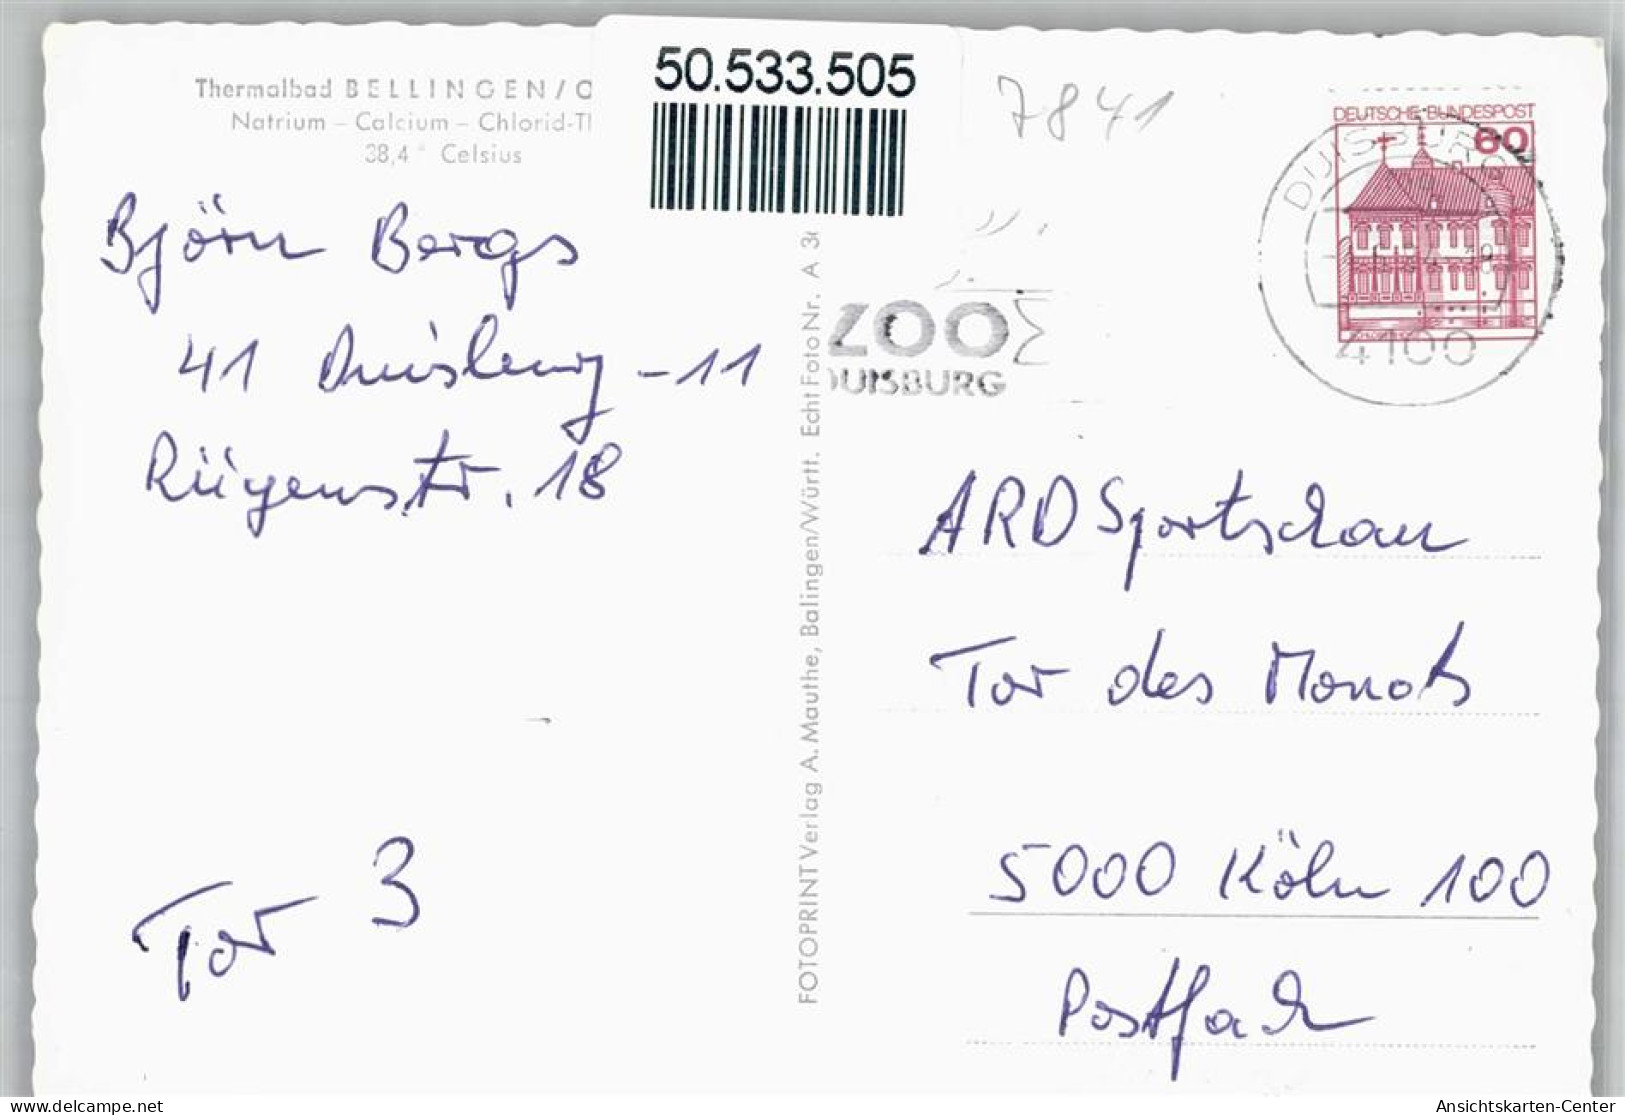 50.533.505
Thermalbad BELLINGEN/
Natrium – Calcium – Chlorid-
38,4° Celsius
7841
DEUTSCHE BUNDESPOST
60
DUISBURG
4100
ZOO
DUISBURG
Björn Bergs
41 Duisburg - 11
Rügenstr. 18
Tor 3
FOTOPRINT Verlag A. Mauthe, Balingen/Württ. Echt Foto Nr. A
ARD Sportschau
Tor des Monats
5000 Köln 100
Postfach
delcampe.net
Ansichtskarten-Center